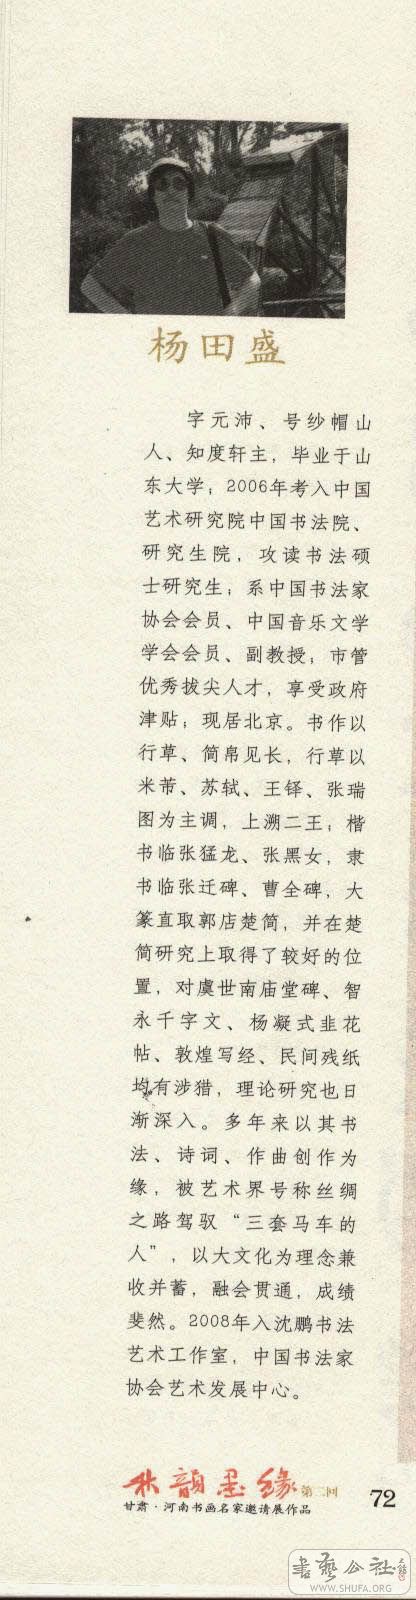 杨田盛
字元沛、号纱帽山
人、知度轩主，毕业于山
东大学；2006年考入中国
艺术研究院中国书法院、
研究生院，攻读书法硕
士研究生；系中国书法家
协会会员、中国音乐文学
学会会员、副教授；市管
优秀拔尖人才，享受政府
津贴；现居北京。书作以
行草、简帛见长，行草以
米芾、苏轼、王铎、张瑞
图为主调，上溯二王；楷
书临张猛龙、张黑女，隶
书临张迁碑、曹全碑，大
篆直取郭店楚简，并在楚
简研究上取得了较好的位
置，对虞世南庙堂碑、智
永千字文、杨凝式韭花
帖、敦煌写经、民间残纸
均有涉猎，理论研究也日
渐深入。多年来以其书
法、诗词、作曲创作为
缘，被艺术界号称丝绸
之路驾驭“三套马车的
人”，以大文化为理念兼
收并蓄，融会贯通，成绩
斐然。2008年入沈鹏书法
艺术工作室，中国书法家
协会艺术发展中心。
韵墨缘
甘肃·河南书画名家邀请展作品
72
書藝公社
WWW.SHUFA.ORG